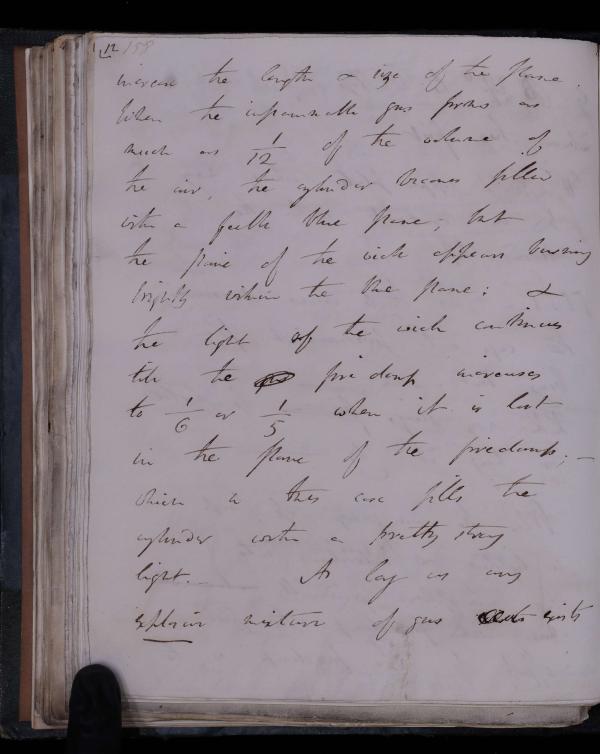 12 158
increase the length & size of the flame.
When the inflammable gas forms as
much as 1/12 of the volume of
the air, the cylinder becomes filled
with a feeble blue flame; but
the flame of the wick appears burning
brightly within the blue flame; &
the light of the wick continues
till the fire damp increases
to 1/6 or 1/5 when it is lost
in the flame of the firedamp; –
which in this case fills the
cylinder with a pretty strong
light. – As long as any
explosive mixture of gas exists